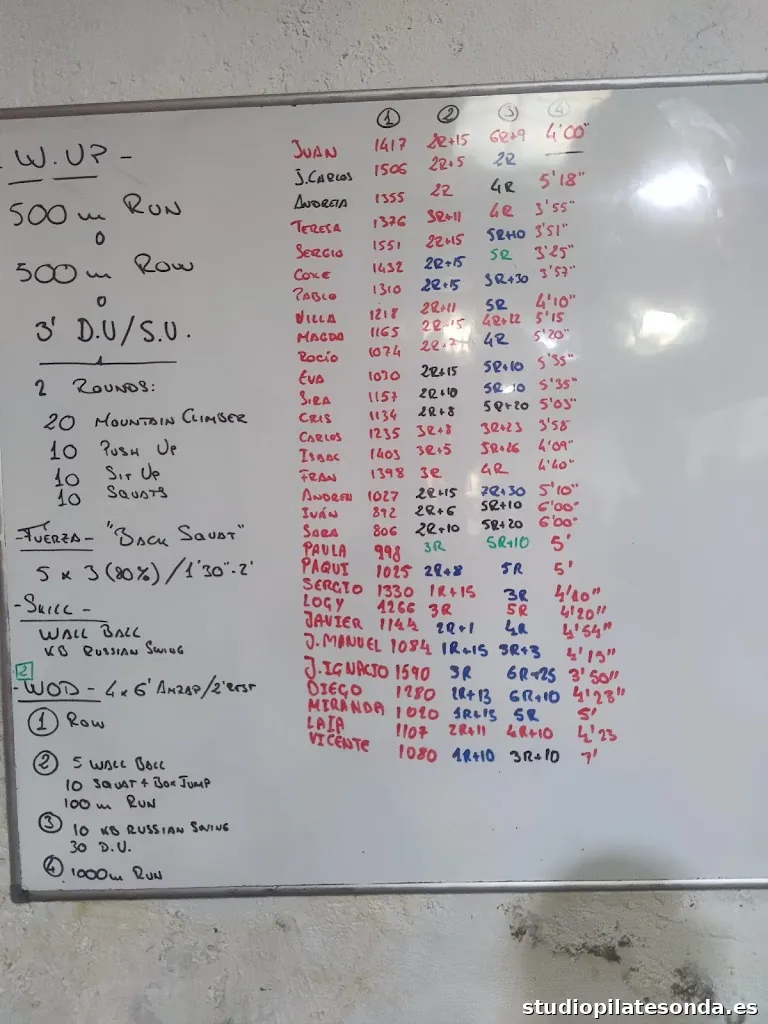 - W.UP -
500 m RUN
o
500 m ROW
o
3' D.U/S.U.
2 ROUNDS:
20 MOUNTAIN CLIMBER
10 PUSH UP
10 SIT UP
10 SQUATS
- FUERZA - "BACK SQUAT"
5 x 3 (80%) / 1'30"-2'
- SKILL -
WALL BALL
KB RUSSIAN SWING
2
- WOD - 4 x 6' AMRAP/2'REST
1 ROW
2 5 WALL BALL
10 SQUAT + BOX JUMP
100 m RUN
3 10 KB RUSSIAN SWING
30 D.U.
4 1000m RUN
1 2 3 4
JUAN 1417 2R+15 6R+9 4'00"
J.CARLOS 1506 2R+5 2R —
ANDREA 1355 2R 4R 5'18"
TERESA 1376 3R+11 4R 3'55"
SERGIO 1551 2R+15 5R+10 3'51"
COKE 1432 2R+15 5R 3'25"
PABLO 1310 2R+15 3R+30 3'57"
VILLA 1218 2R+11 5R 4'10"
MAGDA 1165 2R+15 4R+22 5'15
ROCÍO 1074 2R+7 4R 5'20"
EVA 1030 2R+15 5R+10 5'35"
SIRA 1157 2R+10 5R+10 5'35"
CRIS 1134 2R+8 5R+20 5'03"
CARLOS 1235 3R+8 3R+23 3'58"
ISAAC 1403 3R+5 5R+26 4'09"
FRAN 1398 3R 4R 4'40"
ANDREU 1027 2R+15 7R+30 5'10"
IVÁN 892 2R+6 5R+10 6'00"
SARA 806 2R+10 5R+20 6'00"
PAULA 998 3R 5R+10 5'
PAQUI 1025 2R+8 5R 5'
SERGIO 1330 1R+15 3R 4'10"
LOGY 1266 3R 5R 4'20"
JAVIER 1144 2R+1 4R 4'54"
J.MANUEL 1084 1R+15 3R+3 4'15"
J.IGNACIO 1590 3R 6R+25 3'50"
DIEGO 1280 2R+13 6R+10 4'28"
MIRANDA 1020 1R+13 5R 5'
LAIA 1107 2R+11 4R+10 4'23
VICENTE 1080 1R+10 3R+10 7'
studiopilatesonda.es